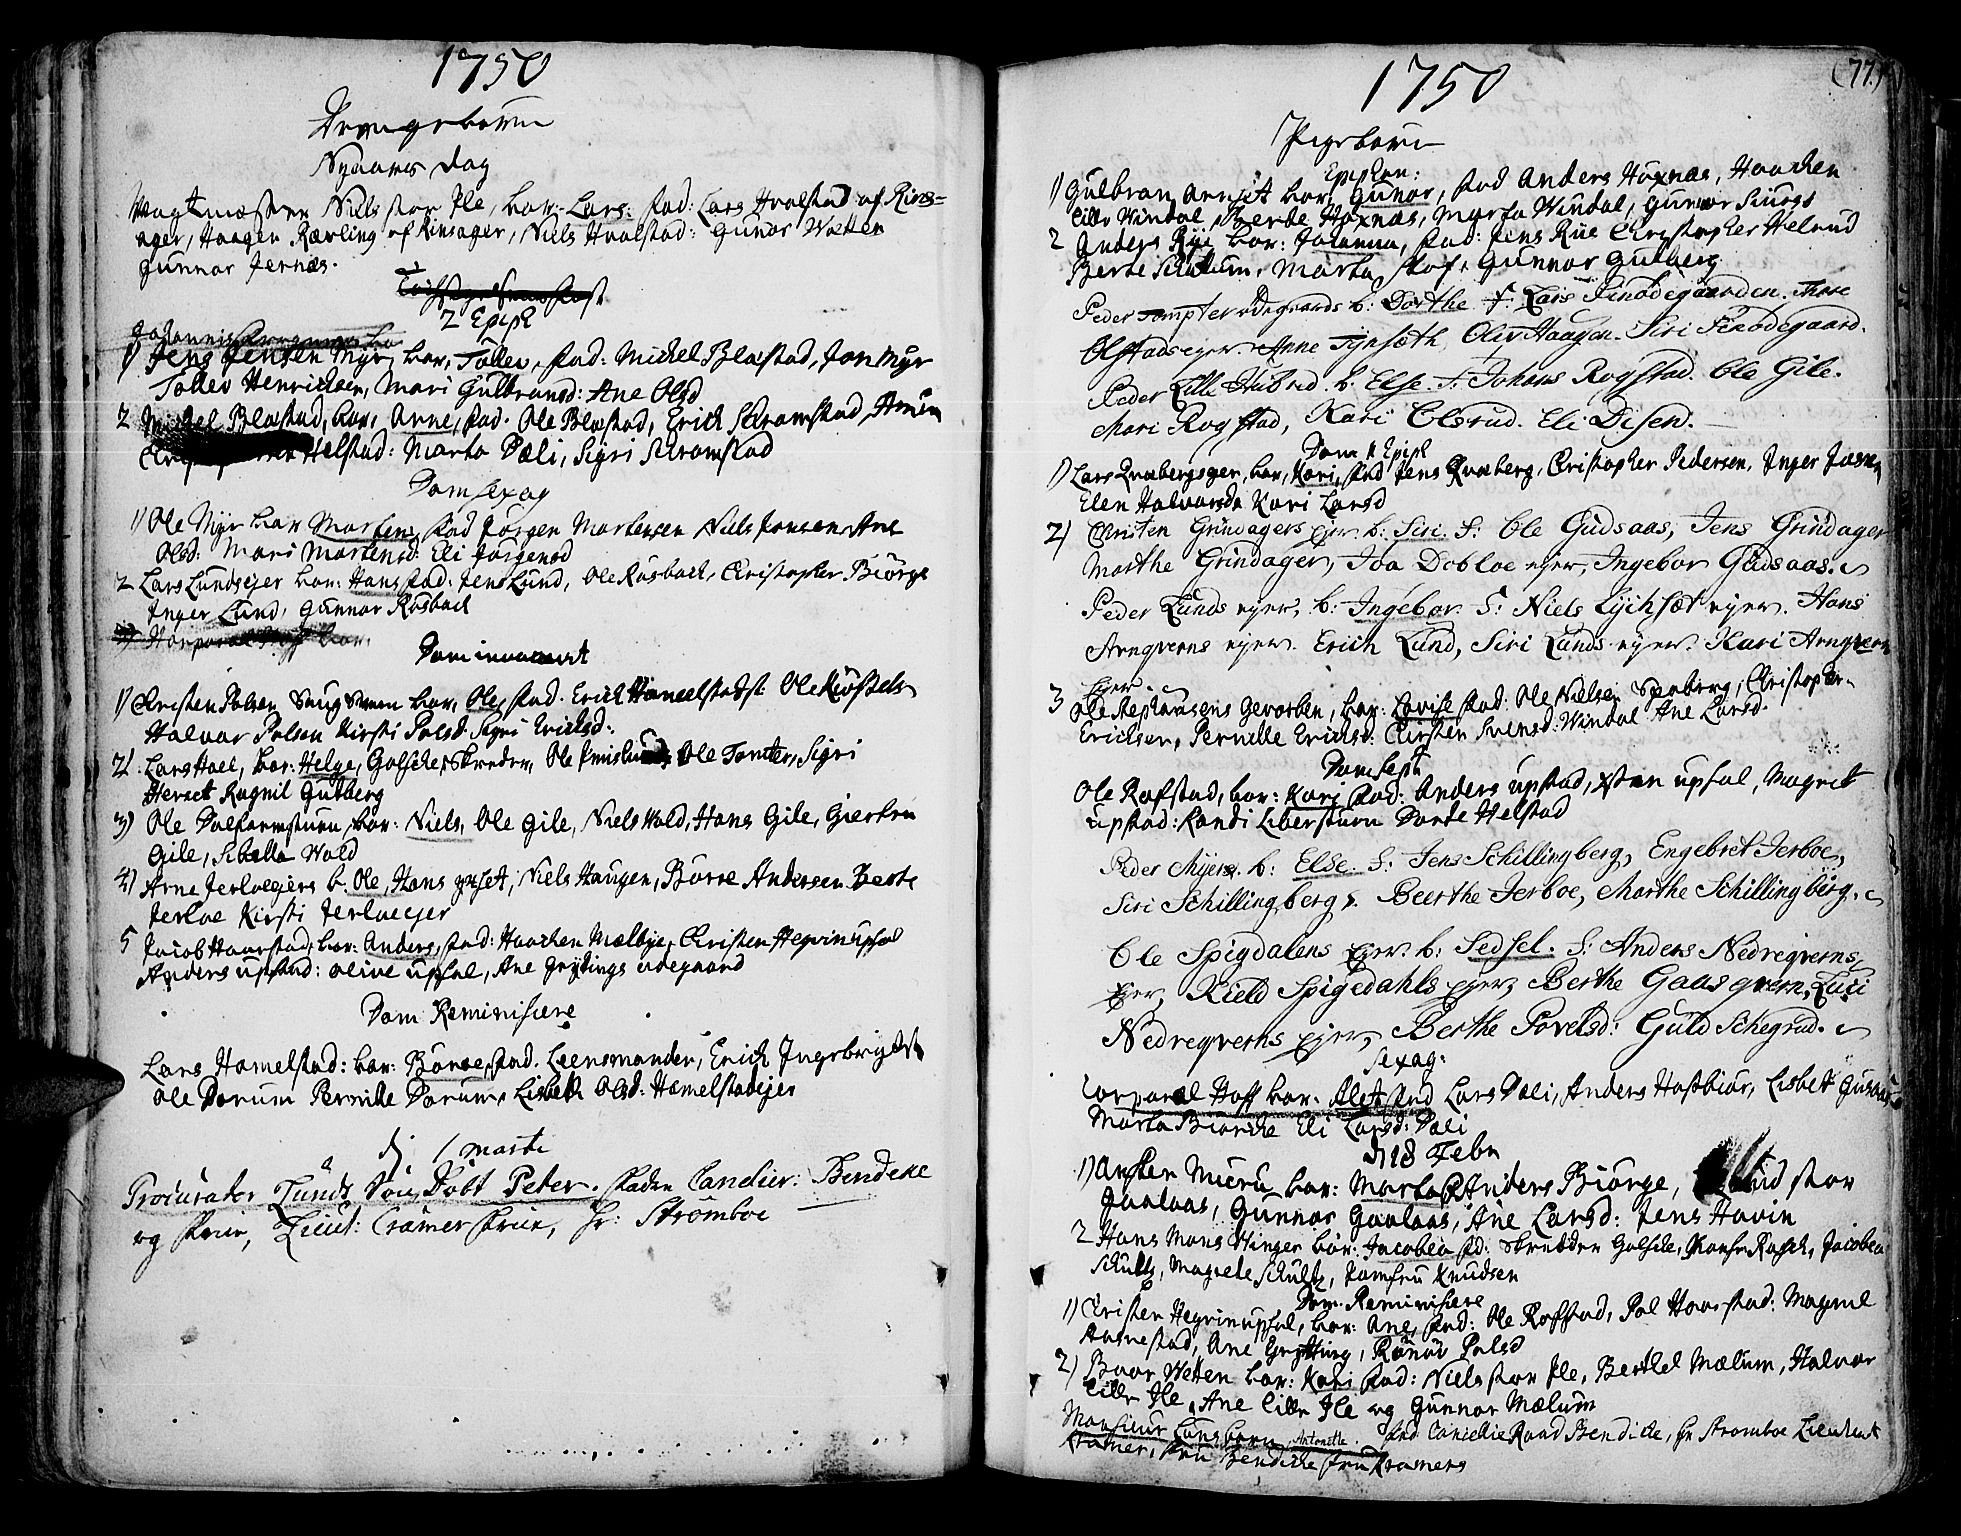 1750
Drengebørn
Nyaars dag
Vagtmæster Niels stor Jle, bar: Lars: fad: Lars Hvalstad af Rins-
ager, Haagen Rævling af Rinsager, Niels Hvalstad: Gunor Wetten
Gunnor Jernæs.
2 Epiph
1) Jens Jensen Myr, bar, Tollev, fad: Michel Blæstad, Jon Myr
Tollev Henrichsen, Mari Gulbransd: Ane Olsd
2 Michel Blæstad, bar, Anne, fad. Ole Blæstad, Erich Schramstad,
Helstad: Marta Dæli, Sigri Schramstad
Dom sexag
1) Ole Myr bar Morten, fad Jörgen Mortensen Niels Jansen Ane
Olsd: Mari Mortensd: Eli Jörgensd
2 Lars Lundsejer bar: Hans fad: Jens Lund, Ole Rusback, Christopher Biörge
Inger Lund, Gunnor Rusback
Dom invocavit
1) Christen Polsen bar, Ole, fad. Erich Hamelstad Ole
Halvor Polsen Kirsti Polsd: Sigri Ericksd:
2) Lars Hoel, bar: Helge, Golsche, Skreder, Ole Ole Tomter, Sigri
Herset Ragnil Gutberg
3) Ole bar: Niels, Ole Gile, Niels Wold, Hans Gile, Giertru
Gile, Sibella Wold
4) Arne Jerloeejers b. Ole, Hans Niels Haugen, Börre Andersen Berte
Jerloe Kirsti Jerloeejer
5 Jacob Haarstad, bar: Anders, fad: Haachen Mælbye, Christen Hegvin upsal
Anders upsand: olive upsal, Ane Grytings ødegaard
Dom Reminisiere
Lars Hamelstad: bar: Börre, fad. Leensmanden, Erich Ingebrigtst
Ole Dorum Pernille Dorum, Lisbeth Olsd: Hamelstadejer
dj 1 marti
Procurator Lunds Søn Döbt Peter. fadere Cancier: Bendeke
og frue, Lieut: Cramer frue, Hr: Strömboe
1750
(77)
Pigebørn
Epiphan:
1) Gulbran bar, Gunor, fad Anders Hoxnæs, Haachen
Lille Windal, Berte Hoxnæs, Marta Windal, Gunor
2 Anders Rye bar: Johanna, fad: Jens Rue Christopher Helrud
Berte Marta Gunnor Gutberg
Peder Tompter ødegaards b: Dorthe f: Lars Finödegaarden. Thore
Olstadseyer. Anne Tynsæth, Oliv Haagen. Siri Finödegaard.
Peder Lille Hubred. b. Else. f. Johans Rogstad. Ole Gile.
Mari Rogstad, Kari Olsrud. Eli Disen.
Dom 1 Epiph
1) Lars Qvæbergseyer, bar, Kari, fad Jens Qvæberg, Christopher Pedersen, Inger
Elen Halvorsda Kari Larsd
2) Christen Grindagers Ejer. b: Siri. S: Ole Gudsaas, Jens Grindager
Marthe Grindager, Joa Dobloe ejer, Ingebor Gudsaas.
Peder Lunds ejer, b: Ingebor. S: Niels Lychsæt ejer. Hans
Arnqverns ejer. Erich Lund, Siri Lunds ejer. Kari Arnqvern
Ejer.
3 Ole Stephansens Gevorben, bar: Lovise fad: Ole Nielsen Christopher
Ericksen, Pernille Ericksd: Kirsten Svensd: Windal Ane Larsd.
Dom Sept
Ole Rafstad, bar: Kari fad: Anders upstad, upsal, Magrit
upstad: Randi Dorte Helstad
Peder Myers. b: Else: S: Jens Schillingberg, Engebret Jerboe,
Siri Schillingberg. Beerthe Jerboe, Marthe Schillingberg.
Ole Spigdalens Ejer. b: Sedsel. S: Anders Nedreqverns
Ejer, Kield Spigedahls Ejer, Berthe Gaasqvern, Lusi
Nedreqverns Ejer, Berthe Povelsd: Guld Schegrud.
sexag:
Corporal Hoff bar. Alet fad Lars Dæli, Anders Hastbiör, Lisbet
Marta Biercke Eli Larsd: Dæli
d 18 Febr
1) bar: Marta Anders Biörge, stor
Gaalaas, Gunnor Gaalaas, Ane Larsd: Jens Havin
2 Hans Mons bar: Jacobea fd: Skredder Golsche, Rasch, Jacobea
Schults, Magrete Schults, Jomfru Knudsen
Dom. Reminisiere
1) Cristen Hegvin upsal, bar: Ane, fad: Ole Rafstad, Pol Haarstad: Magnil
Ane Grytting, Rönöv Polsd
2) Boor Wetten bar: Kari fad: Niels stor Jle, Berthel Mælum, Halvor
Lille Jle, Ane Lille Jle og Gunnor Mælum
Monsieur Lunsbarn, Antonette. fad Cancellie Raad Bendicke, Hr Stromboe Lieutnt
Kramer, fru Bendicke fru Kramers